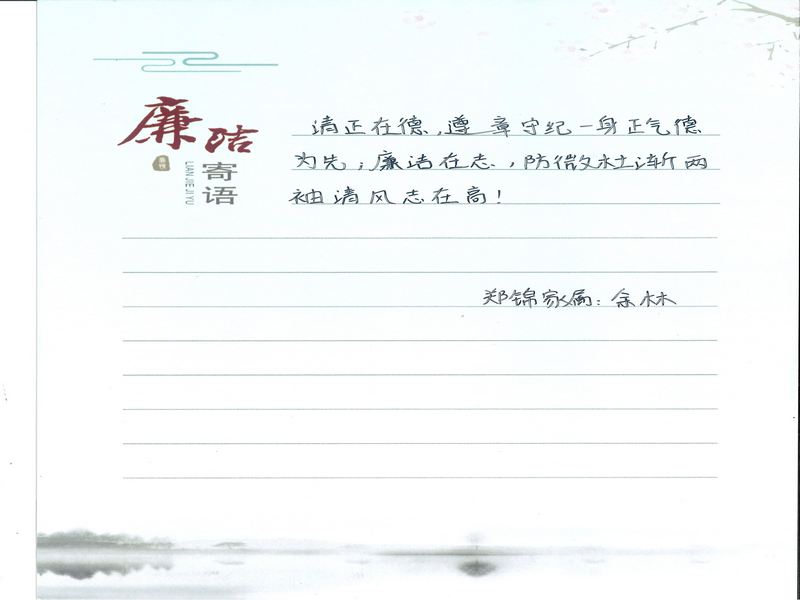 廉洁
寄语
LIAN JIE JI YU
清正在德,遵章守纪一身正气德
为先;廉洁在志,防微杜渐两
袖清风志在高!
郑锦家属:余林